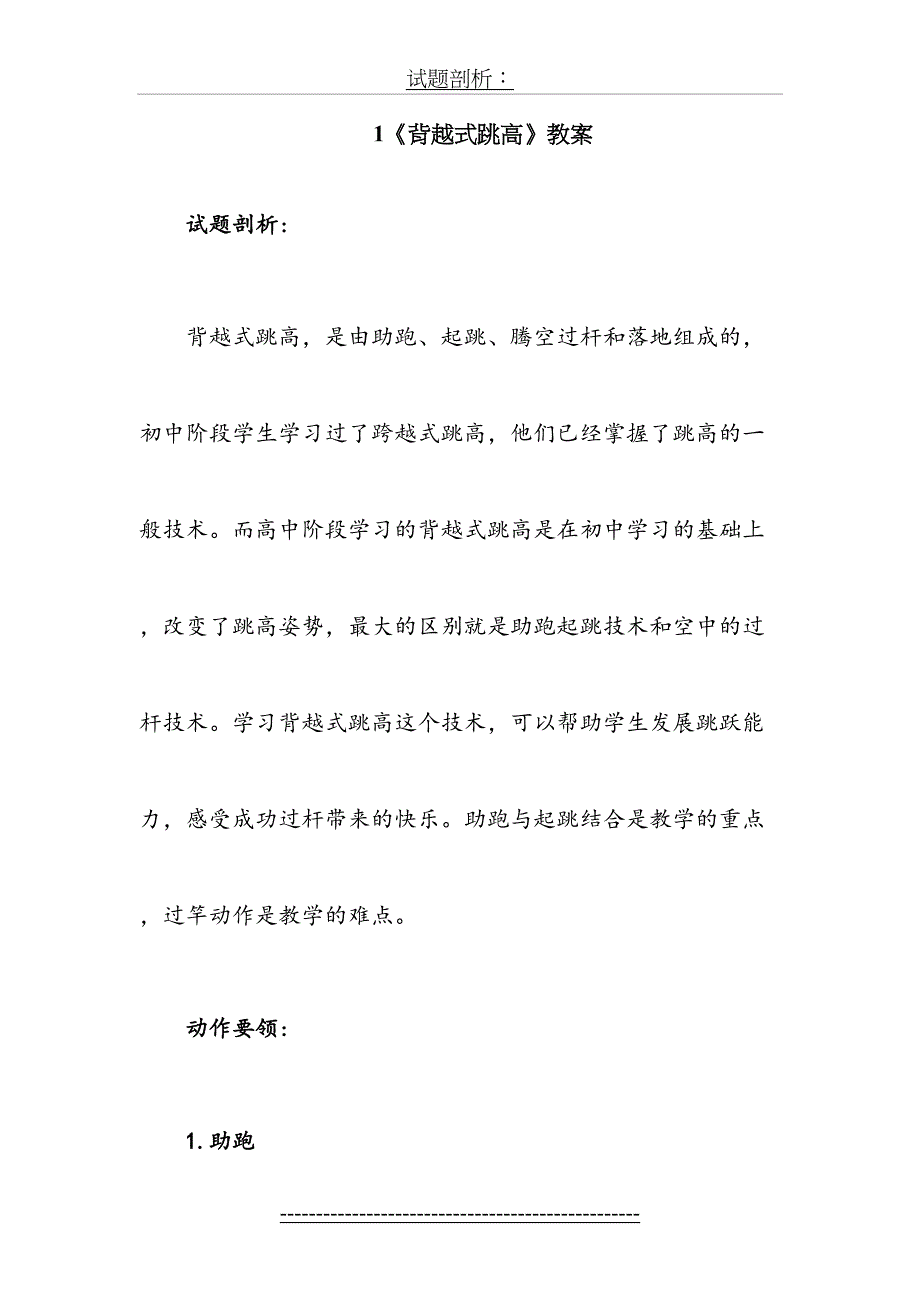 试题剖析：
1《背越式跳高》教案
试题剖析：
背越式跳高，是由助跑、起跳、腾空过杆和落地组成的，
初中阶段学生学习过了跨越式跳高，他们已经掌握了跳高的一
般技术。而高中阶段学习的背越式跳高是在初中学习的基础上
，改变了跳高姿势，最大的区别就是助跑起跳技术和空中的过
杆技术。学习背越式跳高这个技术，可以帮助学生发展跳跃能
力，感受成功过杆带来的快乐。助跑与起跳结合是教学的重点
，过竿动作是教学的难点。
动作要领：
1.助跑
---------------------------------------------------